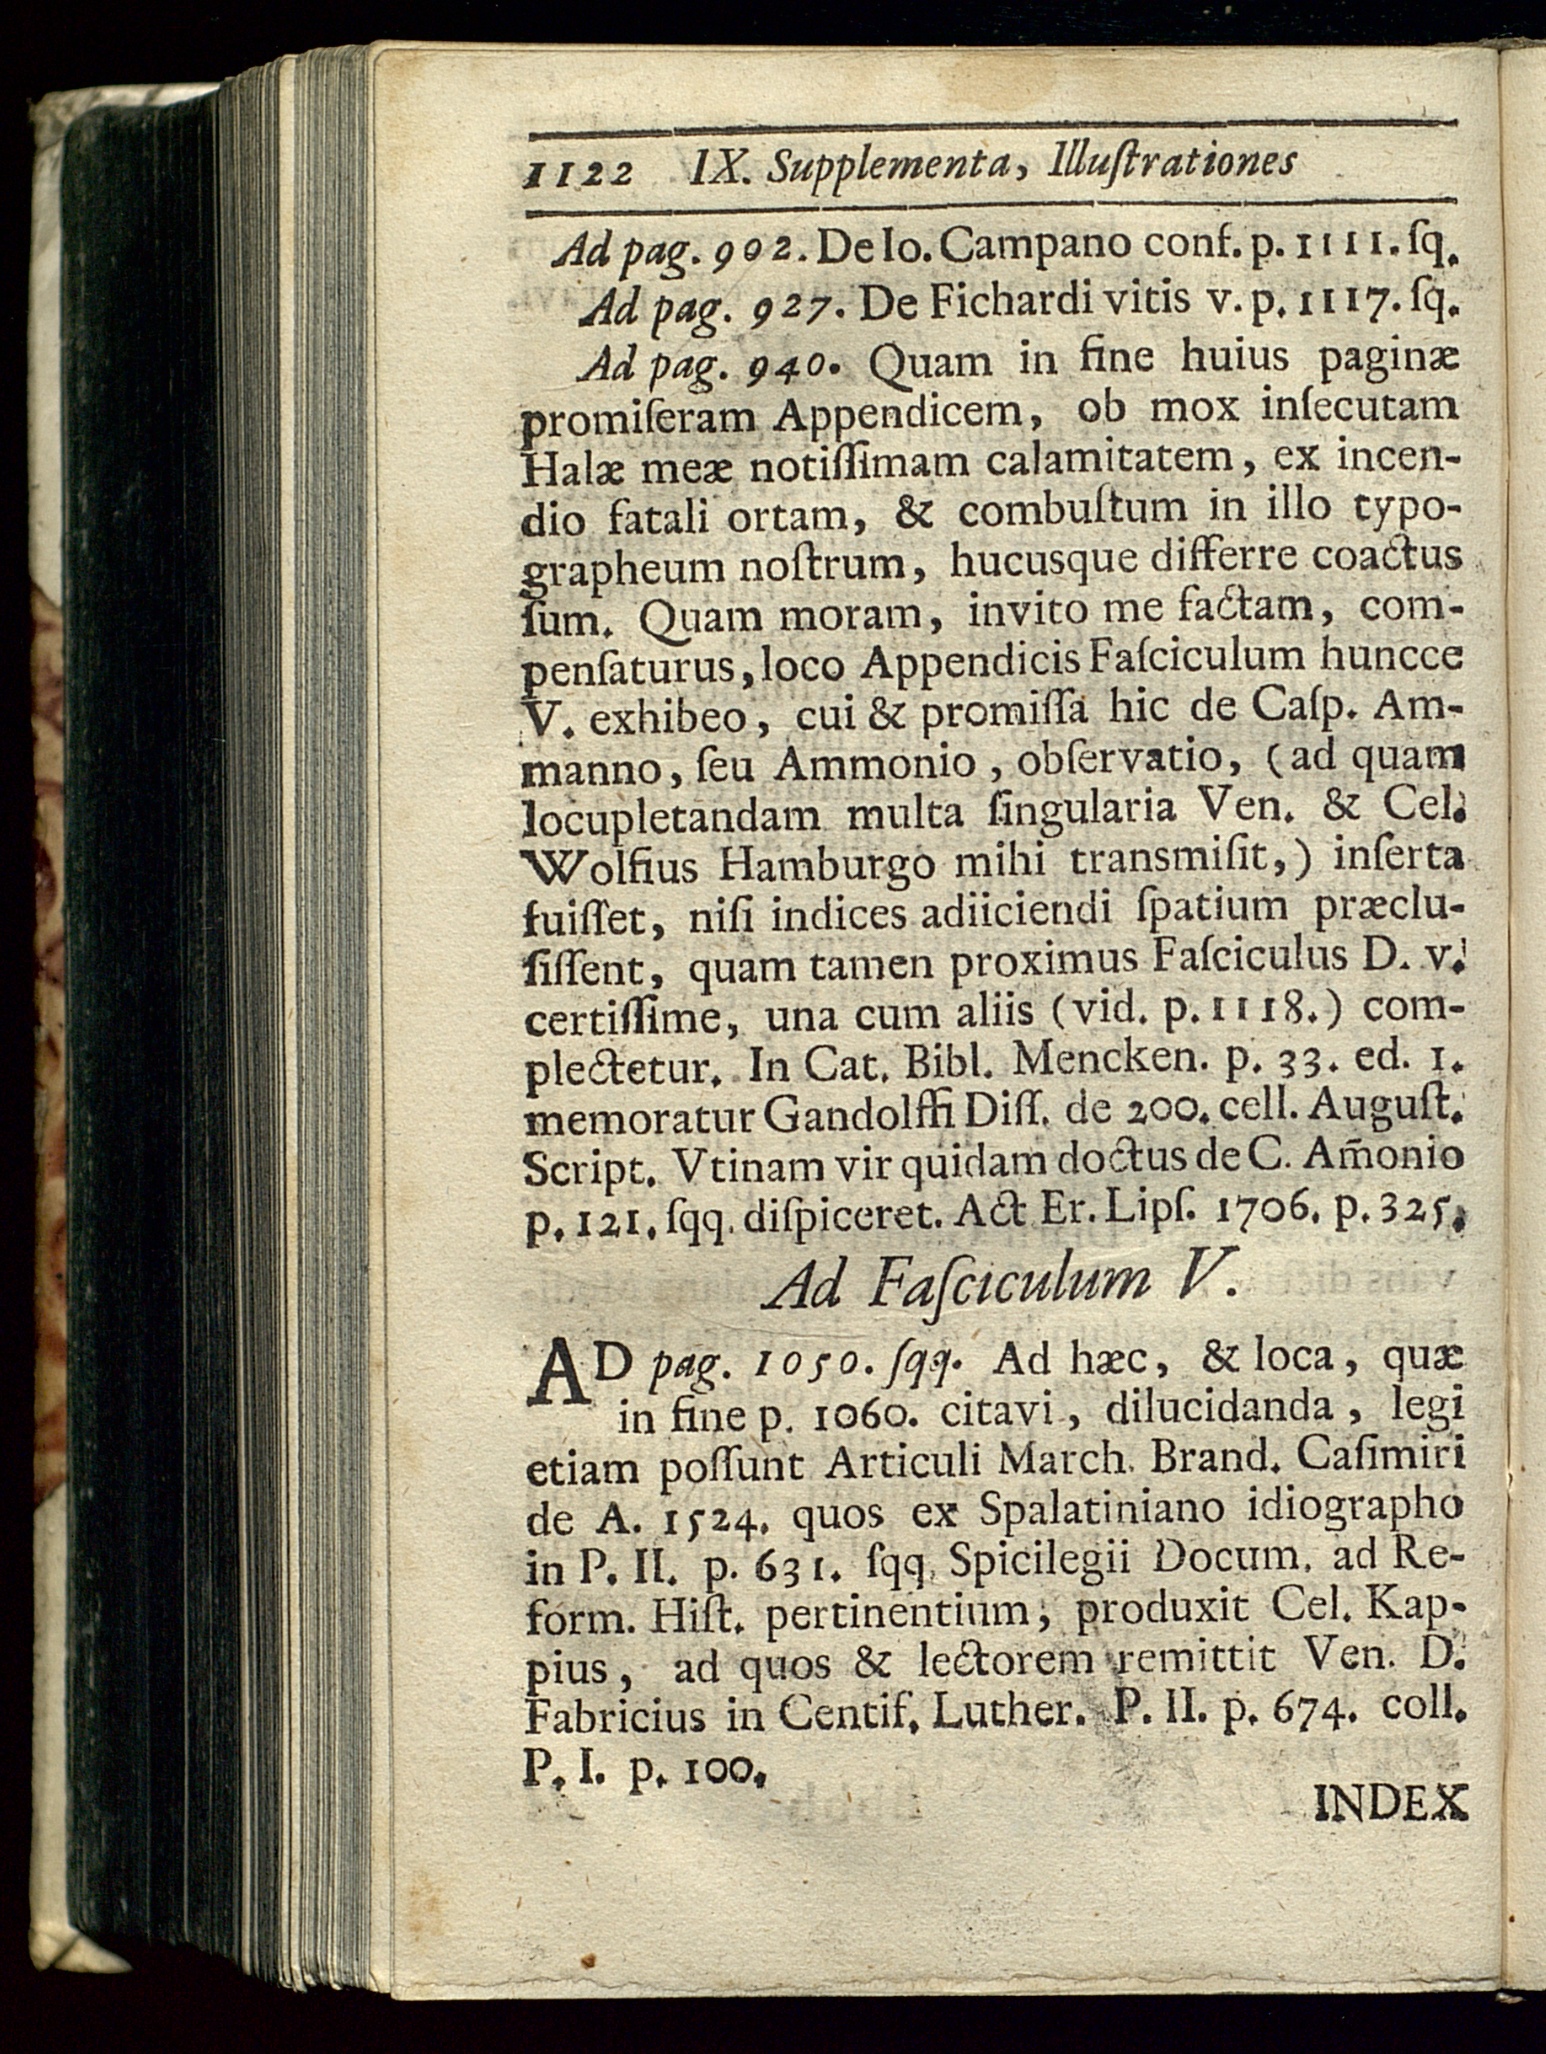 1122 IX. Supplementa, Illuſtrationes
Ad pag. 902. De Io. Campano conf. p. 1111. ſq.
Ad pag. 927. De Fichardi vitis v. p. 1117. ſq.
Ad pag. 940. Quam in fine huius paginæ
promiſeram Appendicem, ob mox inſecutam
Halæ meæ notiſſimam calamitatem, ex incen-
dio fatali ortam, & combuſtum in illo typo-
grapheum noſtrum, hucusque differre coactus
ſum. Quam moram, invito me factam, com-
penſaturus, loco Appendicis Faſciculum huncce
V. exhibeo, cui & promiſſa hic de Caſp. Am-
manno, ſeu Ammonio, obſervatio, (ad quam
locupletandam multa ſingularia Ven. & Cel.
Wolfius Hamburgo mihi transmiſit,) inſerta
fuiſſet, niſi indices adiiciendi ſpatium præclu-
ſiſſent, quam tamen proximus Faſciculus D. v.
certiſſime, una cum aliis (vid. p. 1118.) com-
plectetur. In Cat. Bibl. Mencken. p. 33. ed. 1.
memoratur Gandolffi Diſſ. de 200. cell. Auguſt.
Script. Vtinam vir quidam doctus de C. Am̃onio
p. 121. ſqq. diſpiceret. Act Er. Lipſ. 1706. p. 325.
Ad Faſciculum V.
AD pag. 1050. ſqq. Ad hæc, & loca, quæ
in fine p. 1060. citavi, dilucidanda, legi
etiam poſſunt Articuli March. Brand. Caſimiri
de A. 1524. quos ex Spalatiniano idiographo
in P. II. p. 631. ſqq. Spicilegii Docum. ad Re-
form. Hiſt. pertinentium, produxit Cel. Kap-
pius, ad quos & lectorem remittit Ven. D.
Fabricius in Centif. Luther. P. II. p. 674. coll.
P. I. p. 100.
INDEX